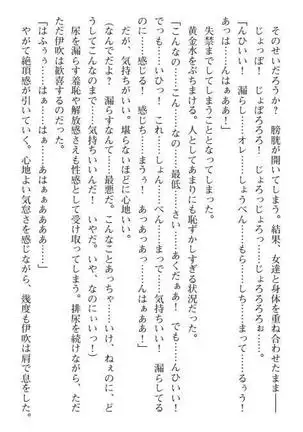 そのせいだろうか？　膀胱が開いてしまう。結果、女達と身体を重ね合わせたまま――
「じょっぽ！　じょぽろろろ！　じょろじょろじょろ、じょろろろろぉ……。
「んひいい！　漏らし……オレ……しょうべん……もら……し、ちまって……るぅぅ！
あっは……んはぁぁあ」
失禁までしてしまうこととなってしまった。
黄金水をぶちまける。人としてあまりにも恥ずかしすぎる状況だった。
「こんなの……こ……んな、の……最低……さい……あくだぁあ！　でも……んひいい！
でっも……いいっひ！　これ……しょん……べん……まっで……気持ちいい！　漏らしてる
のに……いい……感じる！　感じち……まうぅ！　あっあっあっ……んはぁぁぁ」
だが、気持ちがいい。堪らないほどに心地いい。
（なんでだよ！　漏らすなんて……最悪だ。こんなことあっちゃ……いけ、ねぇのに、ど
うしてこんなのまで……気持ちいいんだ！　いやだ。いや、なのにいいっ！）
尿を漏らす羞恥や解放感さえも性感として受け取ってしまう。排尿を続けながら、ただ
ただ伊吹は歓喜するのだった。
「はふうぅ……はぁ……はぁ……あはぁぁぁああああ」
やがて絶頂感が引いていく。心地よい気怠さを感じながら、幾度も伊吹は肩で息をした。